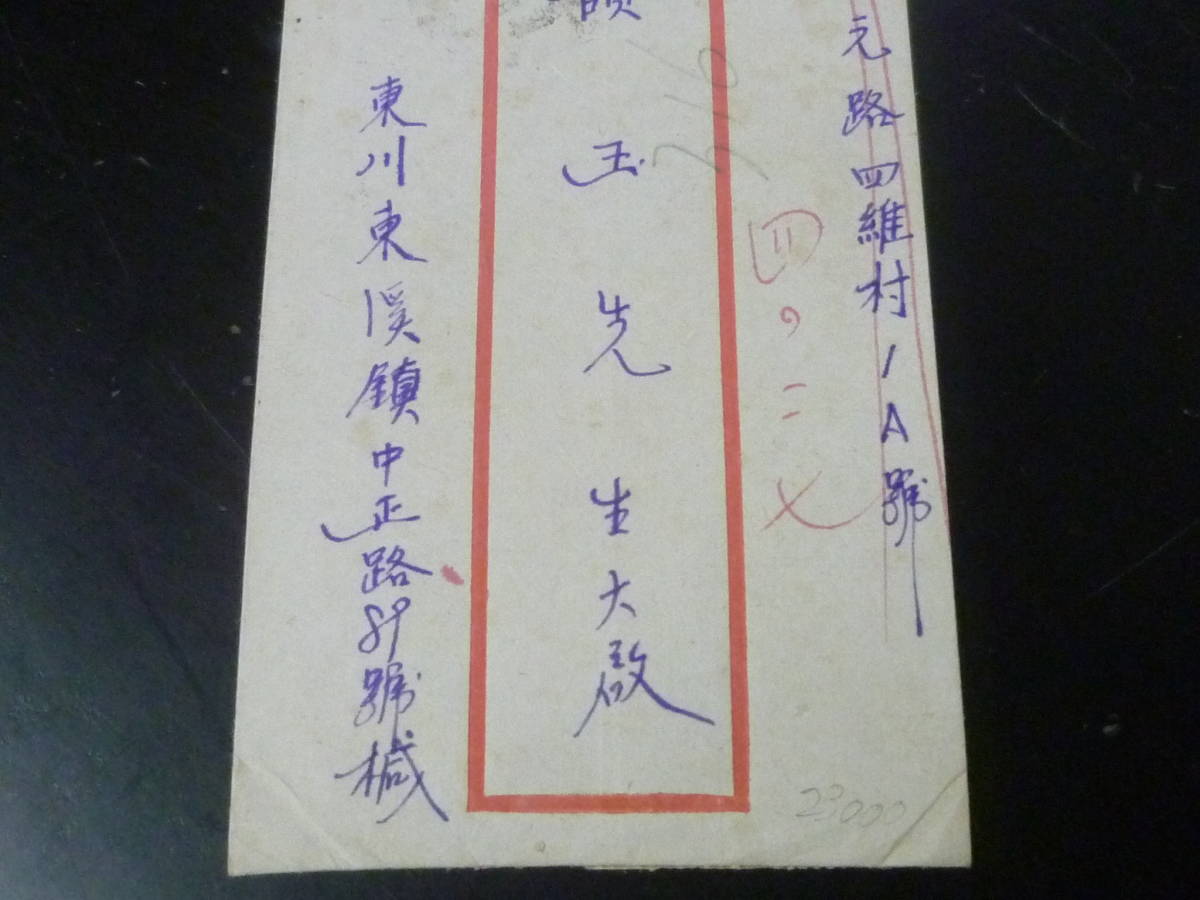 元路四維村1A號
四、二七
316
玉先生大啟
東川東溪鎮中正路89號椷
23000